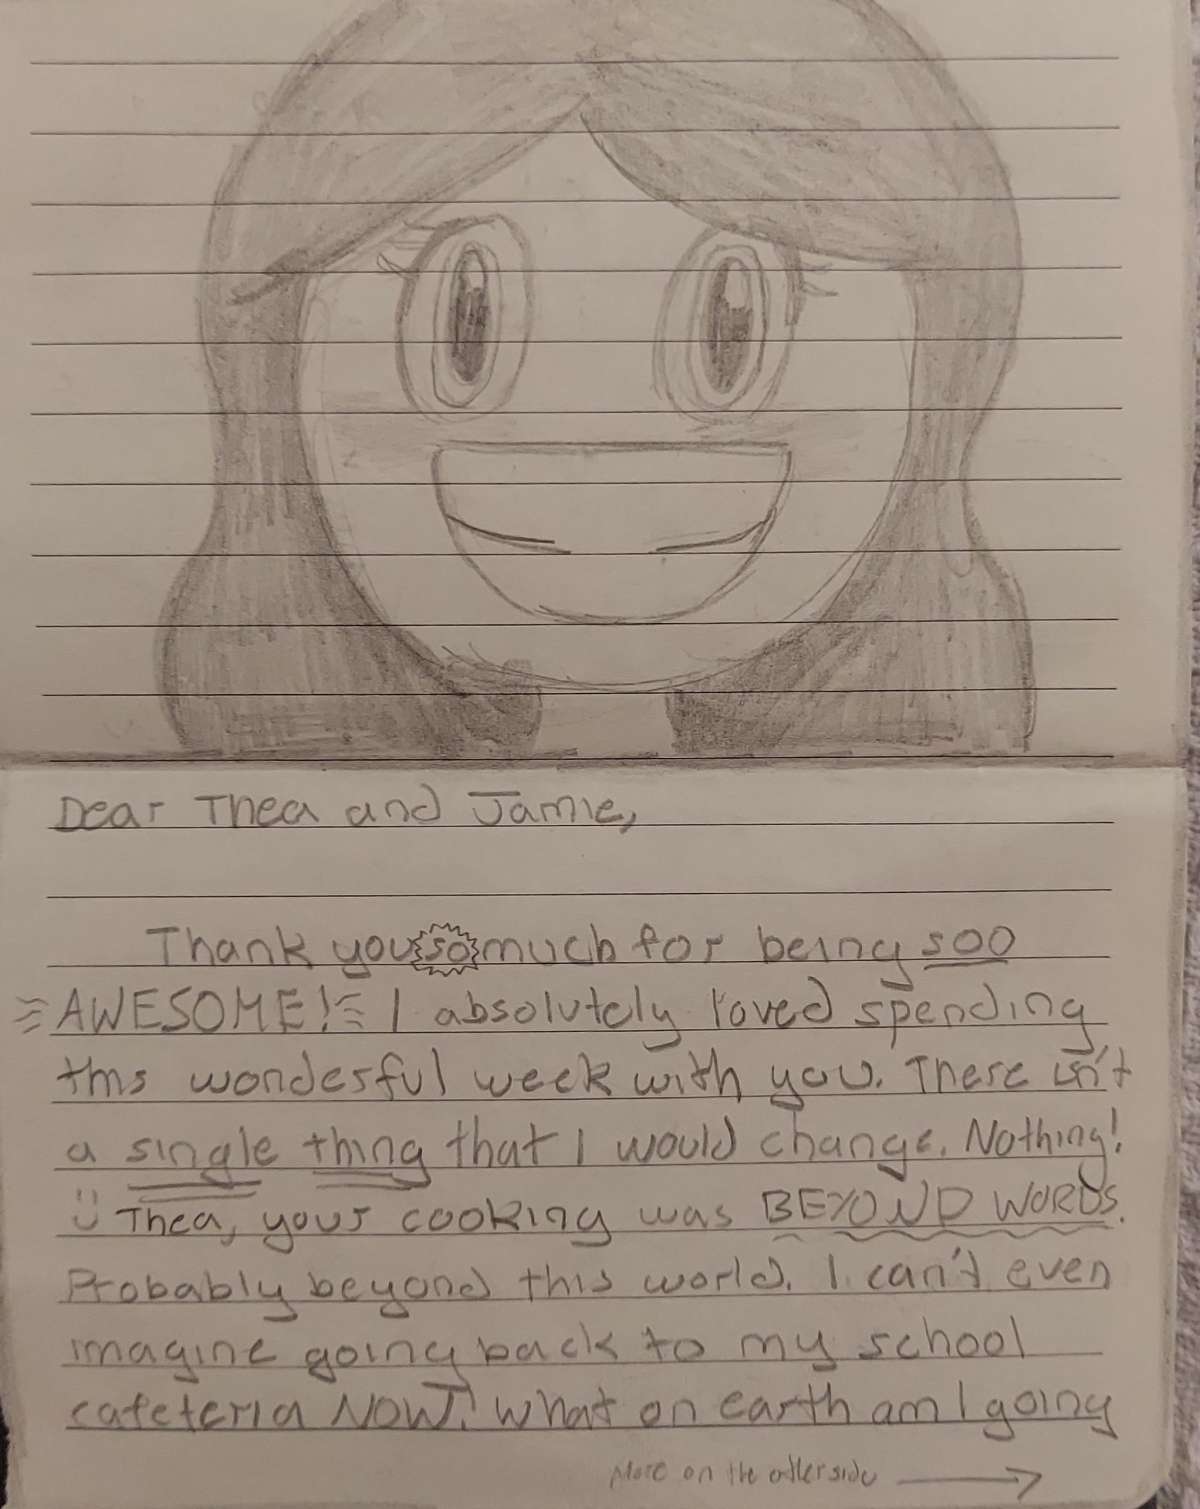 Dear Thea and Jamie,
Thank you so much for being soo
AWESOME! I absolutely loved spending
this wonderful week with you. There isn't
a single thing that I would change. Nothing!
Thea, your cooking was BEYOND WORDS.
Probably beyond this world. I can't even
imagine going back to my school
cafeteria NOW! What on earth am I going
More on the other side